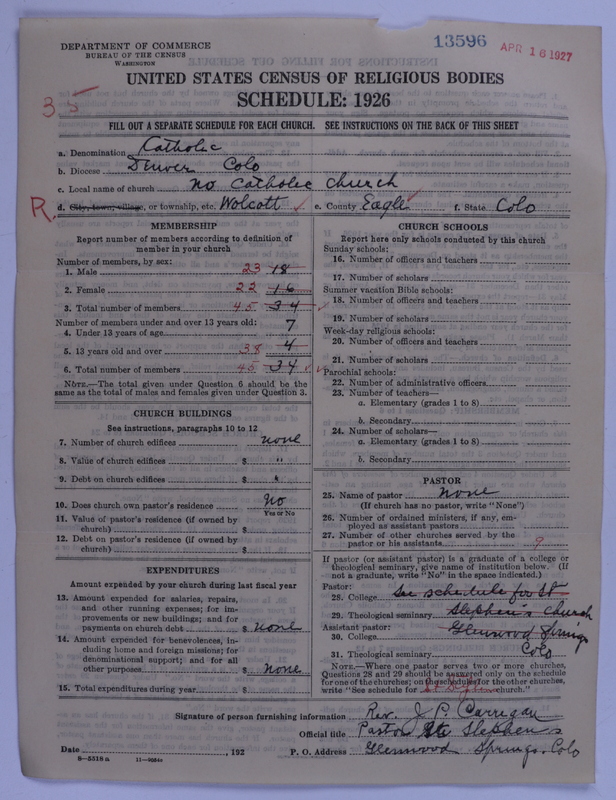 DEPARTMENT OF COMMERCE
BUREAU OF THE CENSUS
WASHINGTON
13596
APR 16 1927
UNITED STATES CENSUS OF RELIGIOUS BODIES
SCHEDULE: 1926
35
FILL OUT A SEPARATE SCHEDULE FOR EACH CHURCH. SEE INSTRUCTIONS ON THE BACK OF THIS SHEET
a. Denomination Catholic
b. Diocese Denver Colo
c. Local name of church no Catholic church
R. d. City, town, village, or township, etc. Wolcott e. County Eagle f. State Colo
MEMBERSHIP
Report number of members according to definition of member in your church
Number of members, by sex:
1. Male 23 18
2. Female 22 16
3. Total number of members 45 34
Number of members under and over 13 years old:
4. Under 13 years of age 7
5. 13 years old and over 38 4
6. Total number of members 45 34
NOTE.—The total given under Question 6 should be the same as the total of males and females given under Question 3.
CHURCH BUILDINGS
See instructions, paragraphs 10 to 12
7. Number of church edifices none
8. Value of church edifices $ "
9. Debt on church edifices $ "
10. Does church own pastor's residence No
Yes or No
11. Value of pastor's residence (if owned by church) $
12. Debt on pastor's residence (if owned by church) $
EXPENDITURES
Amount expended by your church during last fiscal year
13. Amount expended for salaries, repairs, and other running expenses; for improvements or new buildings; and for payments on church debt $ none
14. Amount expended for benevolences, including home and foreign missions; for denominational support; and for all other purposes $ none
15. Total expenditures during year $
CHURCH SCHOOLS
Report here only schools conducted by this church
Sunday schools:
16. Number of officers and teachers
17. Number of scholars
Summer vacation Bible schools:
18. Number of officers and teachers
19. Number of scholars
Week-day religious schools:
20. Number of officers and teachers
21. Number of scholars
Parochial schools:
22. Number of administrative officers
23. Number of teachers—
a. Elementary (grades 1 to 8)
b. Secondary
24. Number of scholars—
a. Elementary (grades 1 to 8)
b. Secondary
PASTOR
25. Name of pastor none
(If church has no pastor, write "None")
26. Number of ordained ministers, if any, employed as assistant pastors
27. Number of other churches served by the pastor or his assistants 9
If pastor (or assistant pastor) is a graduate of a college or theological seminary, give name of institution below. (If not a graduate, write "No" in the space indicated.)
Pastor:
28. College see schedule for St
29. Theological seminary Stephen's church
Assistant pastor:
30. College Glenwood Springs
31. Theological seminary Colo
NOTE.—Where one pastor serves two or more churches, Questions 28 and 29 should be answered only on the schedule for one of the churches; on the schedules for the other churches, write "See schedule for church."
Signature of person furnishing information Rev. J. P. Carrigan
Official title Pastor St Stephen's
Date , 192 P. O. Address Glenwood Springs. Colo
8—5518a 11—9654